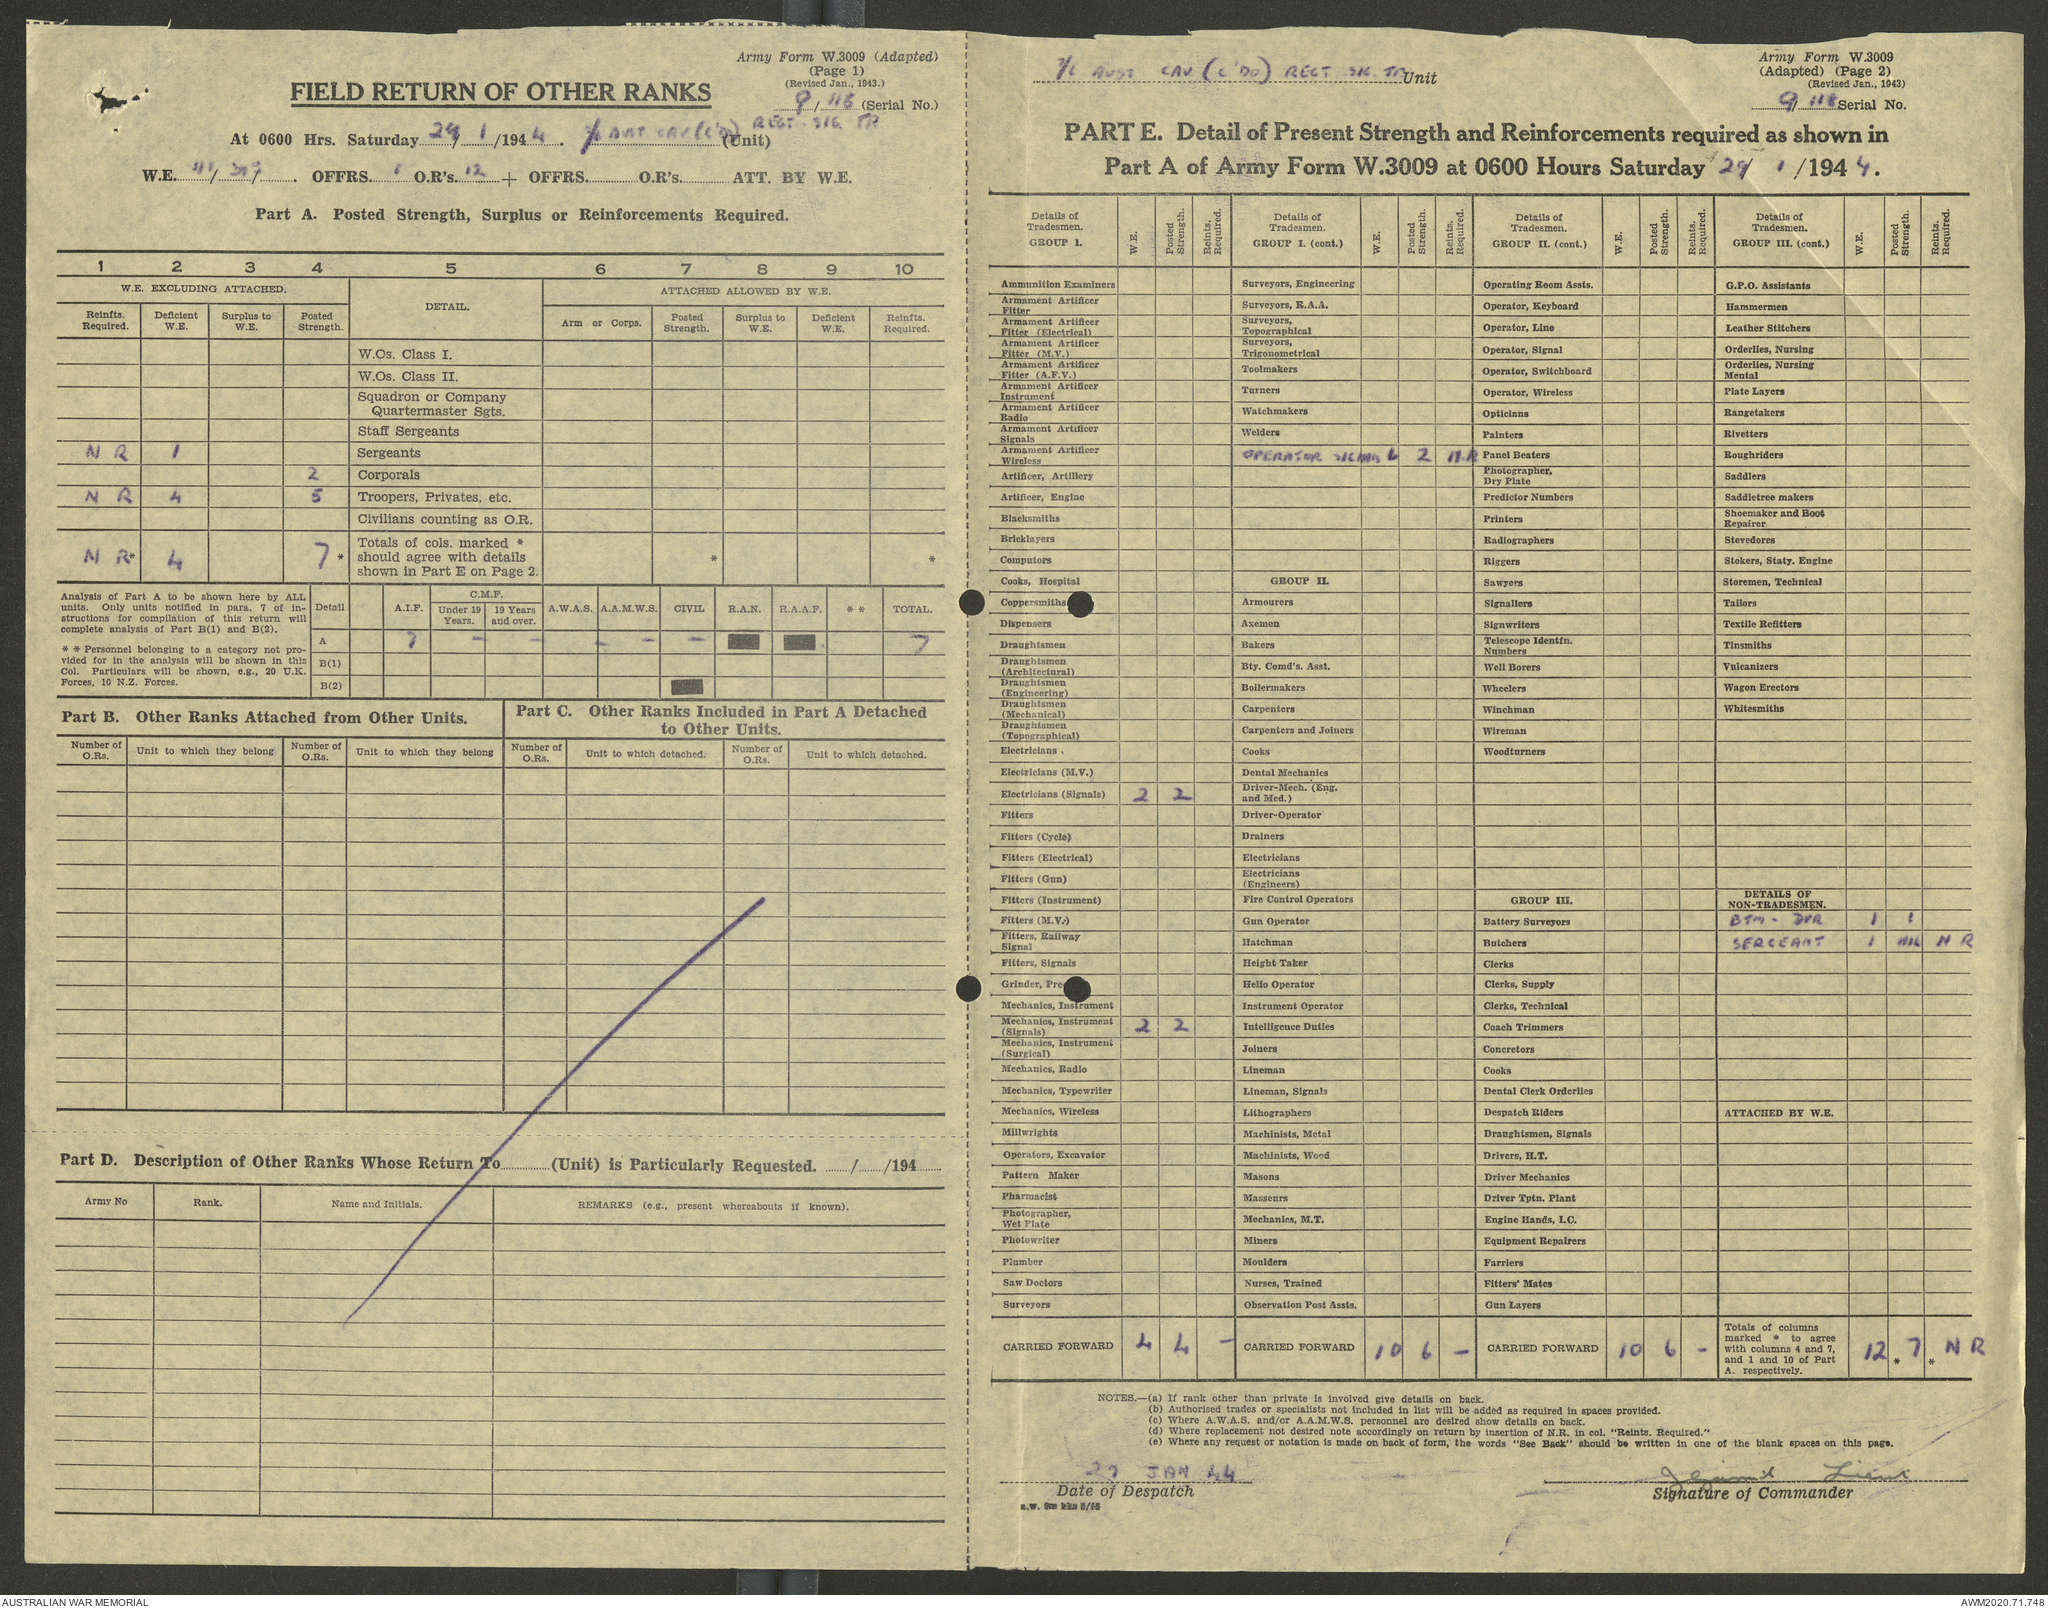 Army Form W.3009 (Adapted)
(Page 1)
(Revised Jan., 1943.)
9/118 (Serial No.)
FIELD RETURN OF OTHER RANKS
At 0600 Hrs. Saturday 29/1/1944. 2/6 AUST CAV (C'DO) REGT SIG TP (Unit)
W.E. 111/ / . OFFRS. 1 O.R's. 12 + OFFRS. O.R's. ATT. BY W.E.
Part A. Posted Strength, Surplus or Reinforcements Required.
1 2 3 4 5 6 7 8 9 10
W.E. EXCLUDING ATTACHED. DETAIL. ATTACHED ALLOWED BY W.E.
Reinfts. Required. Deficient W.E. Surplus to W.E. Posted Strength. Arm or Corps. Posted Strength. Surplus to W.E. Deficient W.E. Reinfts. Required.
W.Os. Class I.
W.Os. Class II.
Squadron or Company
Quartermaster Sgts.
Staff Sergeants
N R 1 Sergeants
2 Corporals
N R 4 5 Troopers, Privates, etc.
Civilians counting as O.R.
N R* 4 7 * Totals of cols. marked * should agree with details shown in Part E on Page 2. * *
Analysis of Part A to be shown here by ALL
units. Only units notified in para. 7 of in-
structions for compilation of this return will
complete analysis of Part B(1) and B(2).
* * Personnel belonging to a category not pro-
vided for in the analysis will be shown in this
Col. Particulars will be shown, e.g., 20 U.K.
Forces, 10 N.Z. Forces.
Detail A.I.F. C.M.F. Under 19 Years. 19 Years and over. A.W.A.S. A.A.M.W.S. CIVIL R.A.N. R.A.A.F. * * TOTAL.
A 7 - - - - - 7
B(1)
B(2)
Part B. Other Ranks Attached from Other Units.
Number of O.Rs. Unit to which they belong Number of O.Rs. Unit to which they belong
Part C. Other Ranks Included in Part A Detached
to Other Units.
Number of O.Rs. Unit to which detached. Number of O.Rs. Unit to which detached.
Part D. Description of Other Ranks Whose Return To (Unit) is Particularly Requested. / /194
Army No Rank. Name and Initials. REMARKS (e.g., present whereabouts if known).
2/6 AUST CAV (C'DO) REGT SIG TP Unit
Army Form W.3009
(Adapted) (Page 2)
(Revised Jan., 1943)
9/118 Serial No.
PART E. Detail of Present Strength and Reinforcements required as shown in
Part A of Army Form W.3009 at 0600 Hours Saturday 29/1/1944.
Details of Tradesmen. GROUP I. W.E. Posted Strength. Reints. Required.
Ammunition Examiners
Armament Artificer Fitter
Armament Artificer Fitter (Electrical)
Armament Artificer Fitter (M.V.)
Armament Artificer Fitter (A.F.V.)
Armament Artificer Instrument
Armament Artificer Radio
Armament Artificer Signals
Armament Artificer Wireless
Artificer, Artillery
Artificer, Engine
Blacksmiths
Bricklayers
Computors
Cooks, Hospital
Coppersmiths
Dispensers
Draughtsmen
Draughtsmen (Architectural)
Draughtsmen (Engineering)
Draughtsmen (Mechanical)
Draughtsmen (Topographical)
Electricians
Electricians (M.V.)
Electricians (Signals) 2 2
Fitters
Fitters (Cycle)
Fitters (Electrical)
Fitters (Gun)
Fitters (Instrument)
Fitters (M.V.)
Fitters, Railway Signal
Fitters, Signals
Grinder, Pre
Mechanics, Instrument
Mechanics, Instrument (Signals) 2 2
Mechanics, Instrument (Surgical)
Mechanics, Radio
Mechanics, Typewriter
Mechanics, Wireless
Millwrights
Operators, Excavator
Pattern Maker
Pharmacist
Photographer, Wet Plate
Photowriter
Plumber
Saw Doctors
Surveyors
CARRIED FORWARD 4 4 -
Details of Tradesmen. GROUP I. (cont.) W.E. Posted Strength. Reints. Required.
Surveyors, Engineering
Surveyors, R.A.A.
Surveyors, Topographical
Surveyors, Trigonometrical
Toolmakers
Turners
Watchmakers
Welders
OPERATOR SIGNALS 6 2 N.R
GROUP II.
Armourers
Axemen
Bakers
Bty. Comd's. Asst.
Boilermakers
Carpenters
Carpenters and Joiners
Cooks
Dental Mechanics
Driver-Mech. (Eng. and Med.)
Driver-Operator
Drainers
Electricians
Electricians (Engineers)
Fire Control Operators
Gun Operator
Hatchman
Height Taker
Helio Operator
Instrument Operator
Intelligence Duties
Joiners
Lineman
Lineman, Signals
Lithographers
Machinists, Metal
Machinists, Wood
Masons
Masseurs
Mechanics, M.T.
Miners
Moulders
Nurses, Trained
Observation Post Assts.
CARRIED FORWARD 10 6 -
Details of Tradesmen. GROUP II. (cont.) W.E. Posted Strength. Reints. Required.
Operating Room Assts.
Operator, Keyboard
Operator, Line
Operator, Signal
Operator, Switchboard
Operator, Wireless
Opticians
Painters
Panel Beaters
Photographer, Dry Plate
Predictor Numbers
Printers
Radiographers
Riggers
Sawyers
Signallers
Signwriters
Telescope Identfn. Numbers
Well Borers
Wheelers
Winchman
Wireman
Woodturners
GROUP III.
Battery Surveyors
Butchers
Clerks
Clerks, Supply
Clerks, Technical
Coach Trimmers
Concretors
Cooks
Dental Clerk Orderlies
Despatch Riders
Draughtsmen, Signals
Drivers, H.T.
Driver Mechanics
Driver Tptn. Plant
Engine Hands, I.C.
Equipment Repairers
Farriers
Fitters' Mates
Gun Layers
CARRIED FORWARD 10 6 -
Details of Tradesmen. GROUP III. (cont.) W.E. Posted Strength. Reints. Required.
G.P.O. Assistants
Hammermen
Leather Stitchers
Orderlies, Nursing
Orderlies, Nursing Mental
Plate Layers
Rangetakers
Rivetters
Roughriders
Saddlers
Saddletree makers
Shoemaker and Boot Repairer
Stevedores
Stokers, Staty. Engine
Storemen, Technical
Tailors
Textile Refitters
Tinsmiths
Vulcanizers
Wagon Erectors
Whitesmiths
DETAILS OF NON-TRADESMEN.
BTM - DVR 1 1
SERGEANT 1 NIL N R
ATTACHED BY W.E.
Totals of columns marked * to agree with columns 4 and 7, and 1 and 10 of Part A. respectively. 12 * 7 * N R
NOTES.—(a) If rank other than private is involved give details on back.
(b) Authorised trades or specialists not included in list will be added as required in spaces provided.
(c) Where A.W.A.S. and/or A.A.M.W.S. personnel are desired show details on back.
(d) Where replacement not desired note accordingly on return by insertion of N.R. in col. "Reints. Required."
(e) Where any request or notation is made on back of form, the words "See Back" should be written in one of the blank spaces on this page.
JAN 44
Date of Despatch
Lieut
Signature of Commander
AUSTRALIAN WAR MEMORIAL
AWM2020.71.748